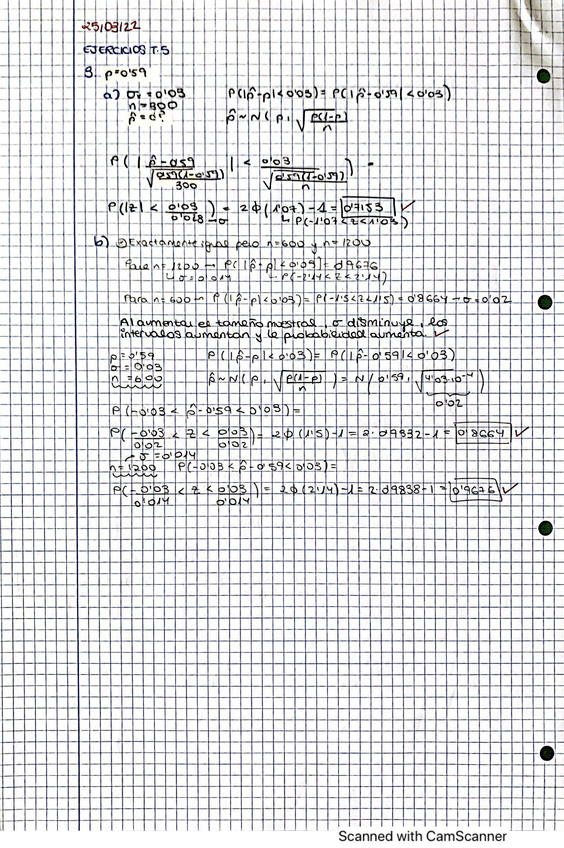 25/03/22
EJERCICIOS T.5
9. p=0'59
a) σ = 0'03 P(|p̂-p|<0'03) = P(|p̂-0'59|<0'03)
n = 300 p̂ ~ N(p, √(p(1-p)/n)
p̂ = d?
P(| (p̂-0'59)/√(0'59(1-0'59)/300) | < 0'03/√(0'59(1-0'59)/n)) =
P(|z| < 0'03/0'028 → σ) = 2Φ(1'07) - 1 = 0'7153 ✓
↳ P(-1'07<z<1'03)
b) Exactamente igual pero n=600 y n=1200
Para n=1200 → P(|p̂-p|<0'03) = 0'9676
↳ σ = 0'014 ↳ P(-2'14<z<2'14)
Para n=600 → P(|p̂-p|<0'03) = P(-1'5<z<1'5) = 0'8664 → σ=0'02
Al aumentar el tamaño mostral, σ disminuye, los
intervalos aumentan y la probabilidad aumenta. ✓
p = 0'59 P(|p̂-p|<0'03) = P(|p̂-0'59|<0'03)
σ = 0'03
n = 600 p̂ ~ N(p, √(p(1-p)/n)) = N(0'59, √(4'03·10⁻⁴))
0'02
P(-0'03 < p̂-0'59 < 0'03) =
P(-0'03/0'02 < z < 0'03/0'02) = 2Φ(1'5) - 1 = 2·0'9332 - 1 = 0'8664 ✓
σ = 0'014
n = 1200 P(-0'03 < p̂-0'59 < 0'03) =
P(-0'03/0'014 < z < 0'03/0'014) = 2Φ(2'14) - 1 = 2·0'9838 - 1 = 0'9676 ✓
Scanned with CamScanner